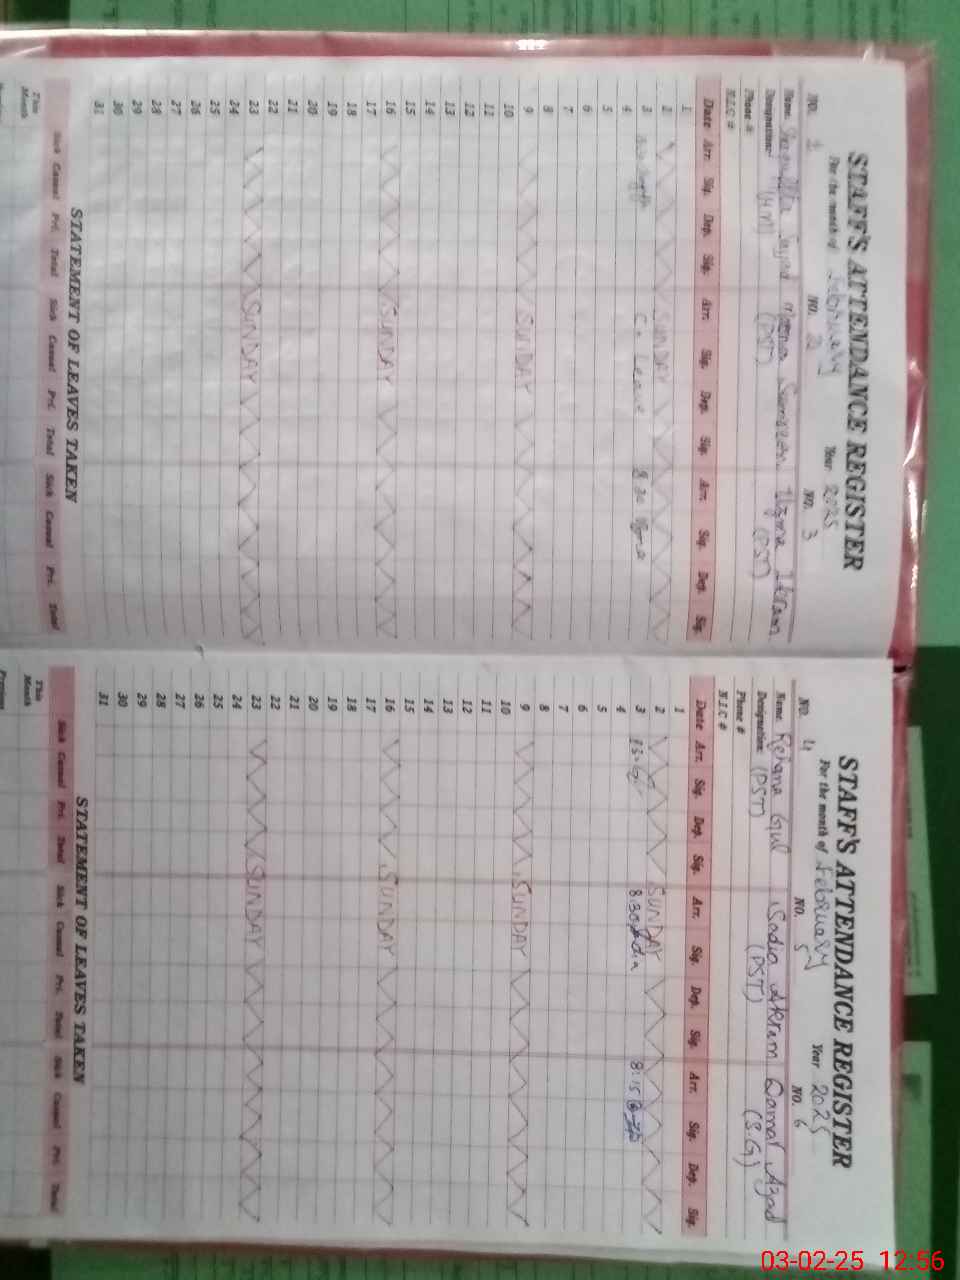 STAFF'S ATTENDANCE REGISTER
For the month of February Year 2025
NO. 1 NO. 2 NO. 3
Name: Sajid Samreen Uzma Ikram
Designation: (HM) (PST) (PST)
Phone #
N.I.C #
Date Arr. Sig. Dep. Sig. Arr. Sig. Dep. Sig. Arr. Sig. Dep. Sig.
1
2 SUNDAY
3 C. Leave 8:30 Uzma
4
5
6
7
8
9 SUNDAY
10
11
12
13
14
15
16 SUNDAY
17
18
19
20
21
22
23 SUNDAY
24
25
26
27
28
29
30
31
STATEMENT OF LEAVES TAKEN
Sick Casual Pri. Total Sick Casual Pri. Total Sick Casual Pri. Total
This Month
STAFF'S ATTENDANCE REGISTER
For the month of February Year 2025
NO. 4 NO. 5 NO. 6
Name: Rehana Gul Sadia Akram Qamar Azad
Designation: (PST) (PST) (S.G)
Phone #
N.I.C #
Date Arr. Sig. Dep. Sig. Arr. Sig. Dep. Sig. Arr. Sig. Dep. Sig.
1
2 SUNDAY
3 8:30 Sadia 8:15
4
5
6
7
8
9 SUNDAY
10
11
12
13
14
15
16 SUNDAY
17
18
19
20
21
22
23 SUNDAY
24
25
26
27
28
29
30
31
STATEMENT OF LEAVES TAKEN
Sick Casual Pri. Total Sick Casual Pri. Total Sick Casual Pri. Total
This Month
Previous
03-02-25 12:56